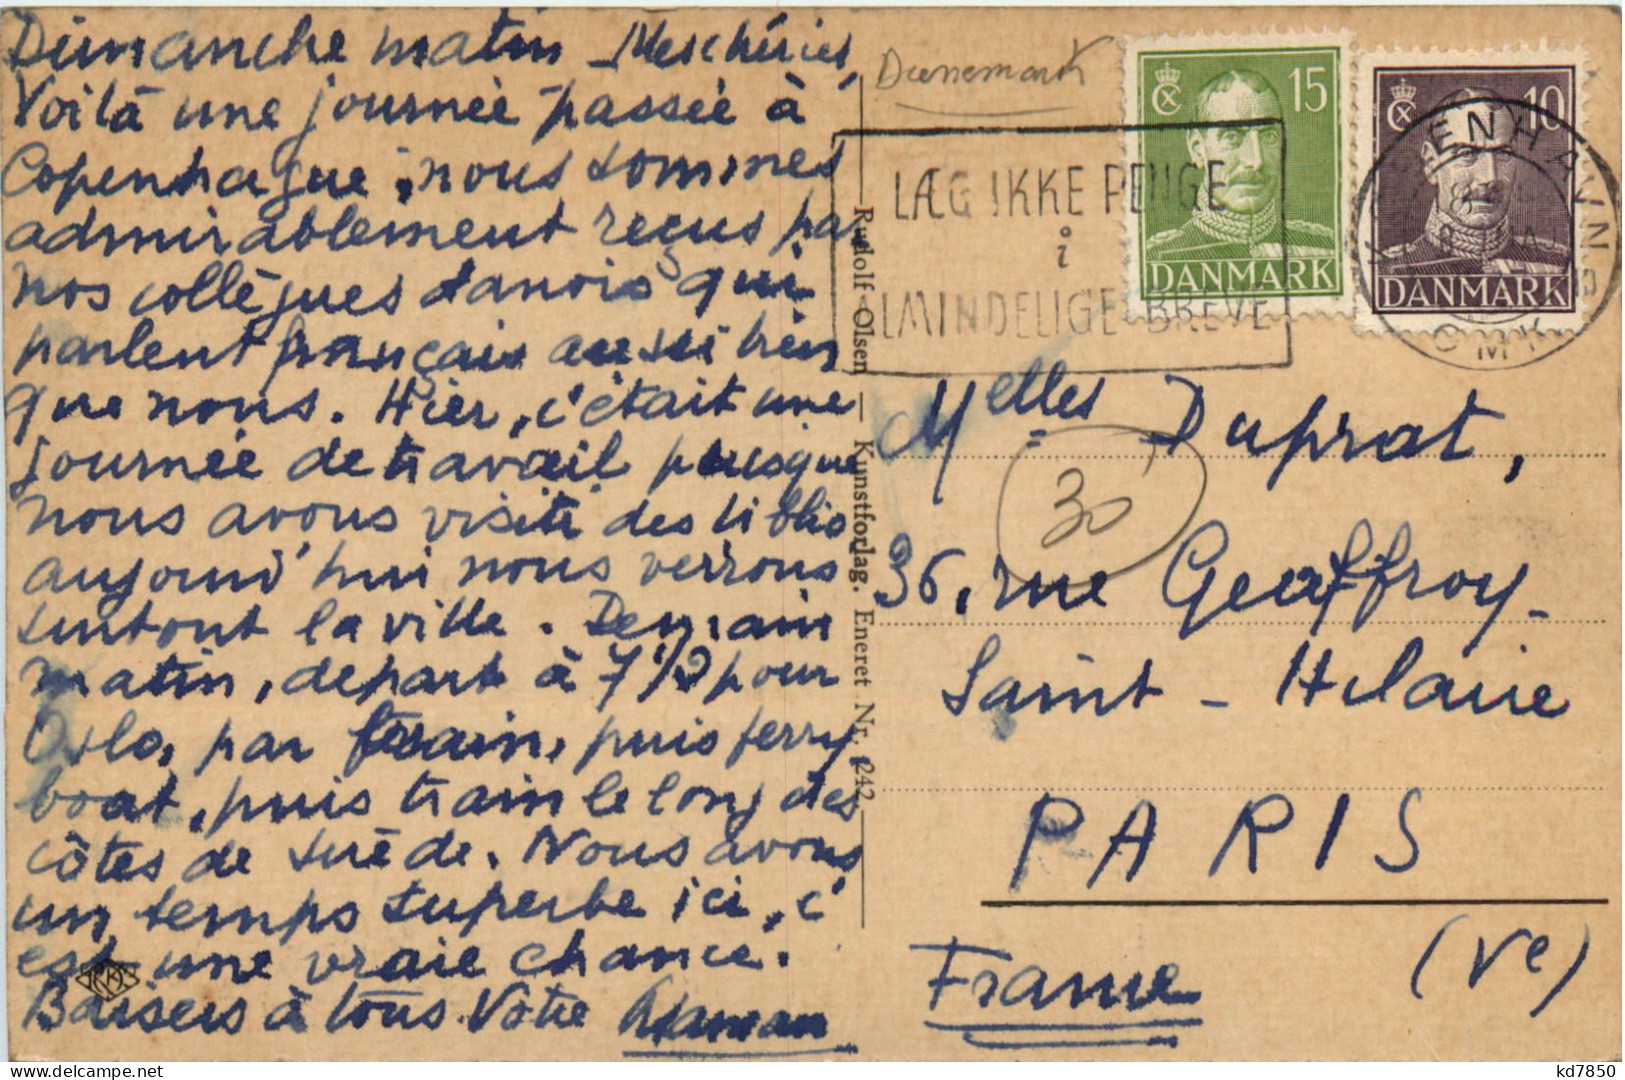 Dimanche matin Mes chéries,
Voilà une journée passée à
Copenhague, nous sommes
admirablement reçus par
nos collègues danois qui
parlent français aussi bien
que nous. Hier, c'était une
journée de travail puisque
nous avons visité des biblio
aujourd'hui nous verrons
surtout la ville. Demain
matin, départ à 7 1/2 pour
Oslo, par train, puis ferry
boat, puis train le long des
côtes de Suède. Nous avons
un temps superbe ici, c'
est une vraie chance.
Baisers à tous. Votre
Rudolf Olsen — Kunstforlag. Eneret Nr. 242
Daenemark
15
DANMARK
10
DANMARK
LÆG IKKE PENGE
i
ALMINDELIGE BREVE
KØBENHAVN
OMK
30
Melles Duprat,
36, rue Geoffroy-
Saint-Hilaire
PARIS
(Ve)
France
kd7850